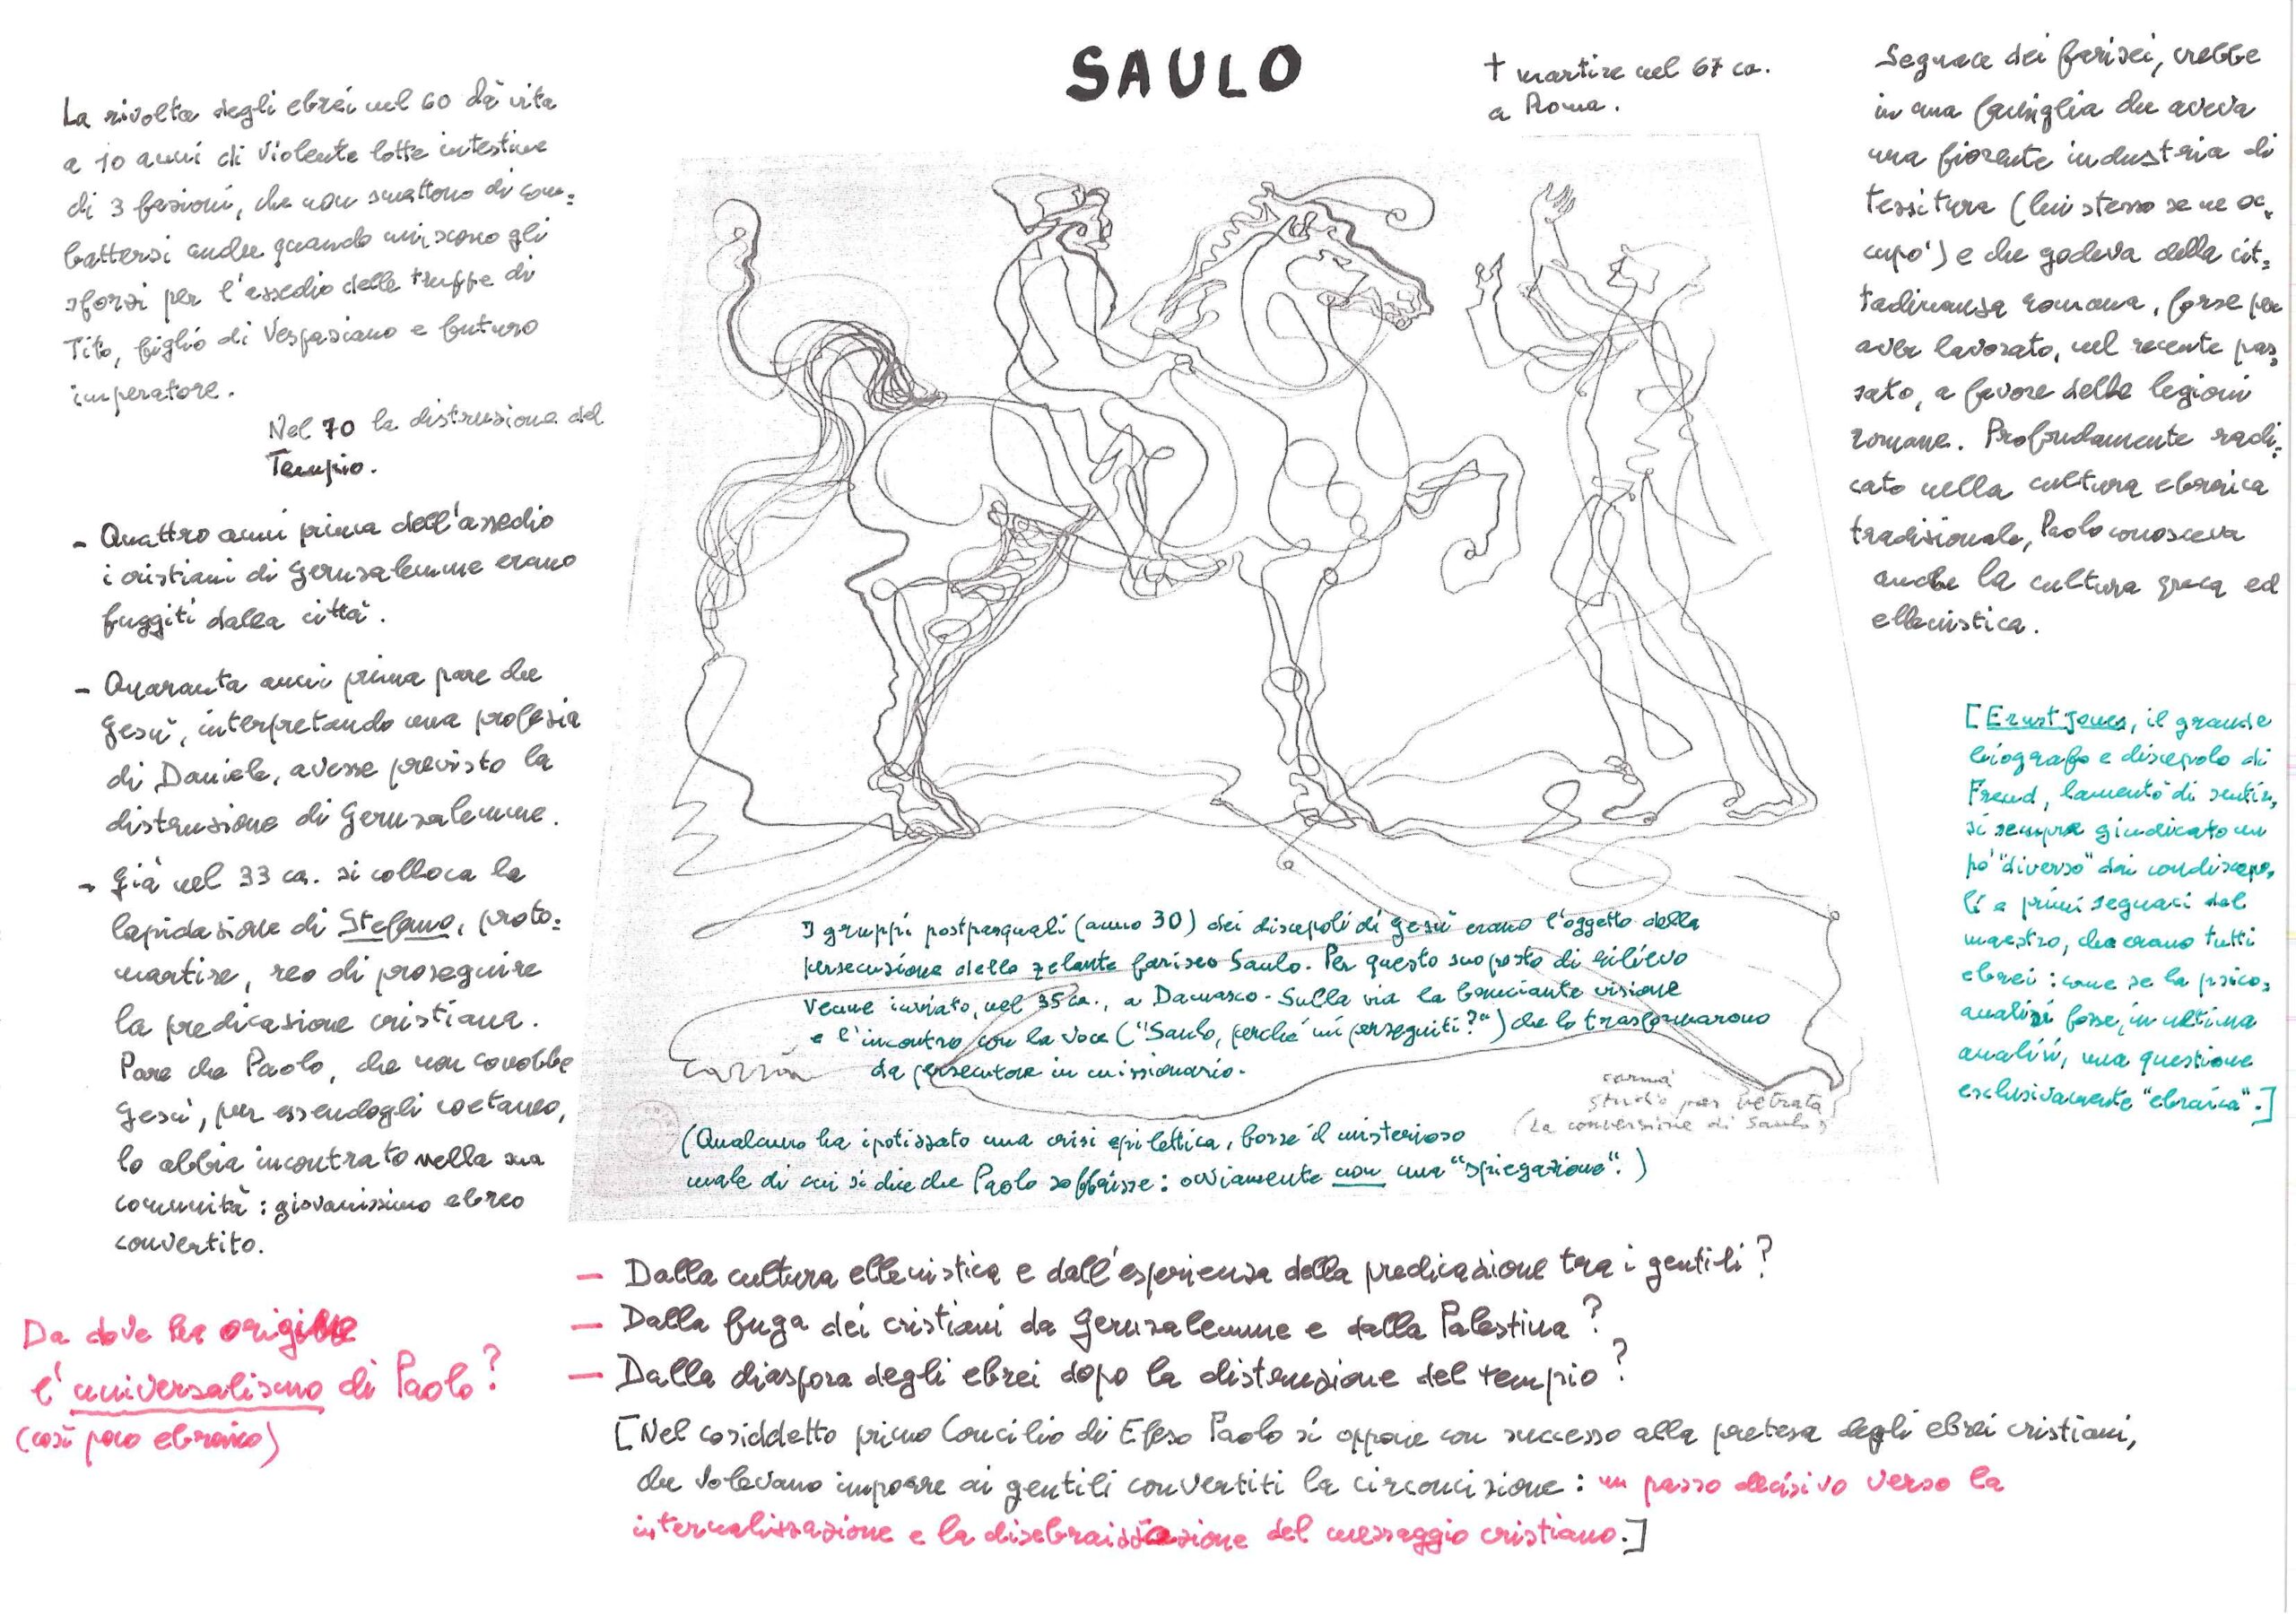 SAULO
† martire nel 67 ca.
a Roma.
La rivolta degli ebrei nel 60 dà vita
a 10 anni di violente lotte intestine
di 3 fazioni, che non smettono di com=
battersi anche quando uniscono gli
sforzi per l'assedio delle truppe di
Tito, figlio di Vespasiano e futuro
imperatore.
Nel 70 la distruzione del
Tempio.
- Quattro anni prima dell'assedio
i cristiani di Gerusalemme erano
fuggiti dalla città.
- Quaranta anni prima pare che
Gesù, interpretando una profezia
di Daniele, avesse previsto la
distruzione di Gerusalemme.
- Già nel 33 ca. si colloca la
lapidazione di Stefano, proto=
martire, reo di proseguire
la predicazione cristiana.
Pare che Paolo, che non conobbe
Gesù, pur essendogli coetaneo,
lo abbia incontrato nella sua
comunità: giovanissimo ebreo
convertito.
Segnace dei farisei, crebbe
in una famiglia che aveva
una fiorente industria di
tessitura (lui stesso se ne oc=
cupò) e che godeva della cit=
tadinanza romana, forse per
aver lavorato, nel recente pas=
sato, a favore delle legioni
romane. Profondamente radi=
cato nella cultura ebraica
tradizionale, Paolo conosceva
anche la cultura greca ed
ellenistica.
[Ernst Jones, il grande
biografo e discepolo di
Freud, lamentò di sentir=
si sempre giudicato un
pò "diverso" dai condiscepo=
li e primi seguaci del
maestro, che erano tutti
ebrei: come se la psico=
analisi fosse, in ultima
analisi, una questione
esclusivamente "ebraica".]
I gruppi postpasquali (anno 30) dei discepoli di Gesù erano l'oggetto della
persecuzione dello zelante fariseo Saulo. Per questo suo posto di rilievo
venne inviato, nel 35 ca., a Damasco. Sulla via la bruciante visione
e l'incontro con la voce ("Saulo, perché mi perseguiti?") che lo trasformarono
da persecutore in missionario.
carmà
studio per vetrata
(La conversione di Saulo)
(Qualcuno ha ipotizzato una crisi epilettica, forse il misterioso
male di cui si dice che Paolo soffrisse: ovviamente non una "spiegazione".)
Da dove ha origine
l'universalismo di Paolo?
(così poco ebraico)
- Dalla cultura ellenistica e dall'esperienza della predicazione tra i gentili?
- Dalla fuga dei cristiani da Gerusalemme e dalla Palestina?
- Dalla diaspora degli ebrei dopo la distruzione del tempio?
[Nel cosiddetto primo Concilio di Efeso Paolo si oppone con successo alla pretesa degli ebrei cristiani,
che volevano imporre ai gentili convertiti la circoncisione: un passo decisivo verso la
internalizzazione e la disebraizzazione del messaggio cristiano.]